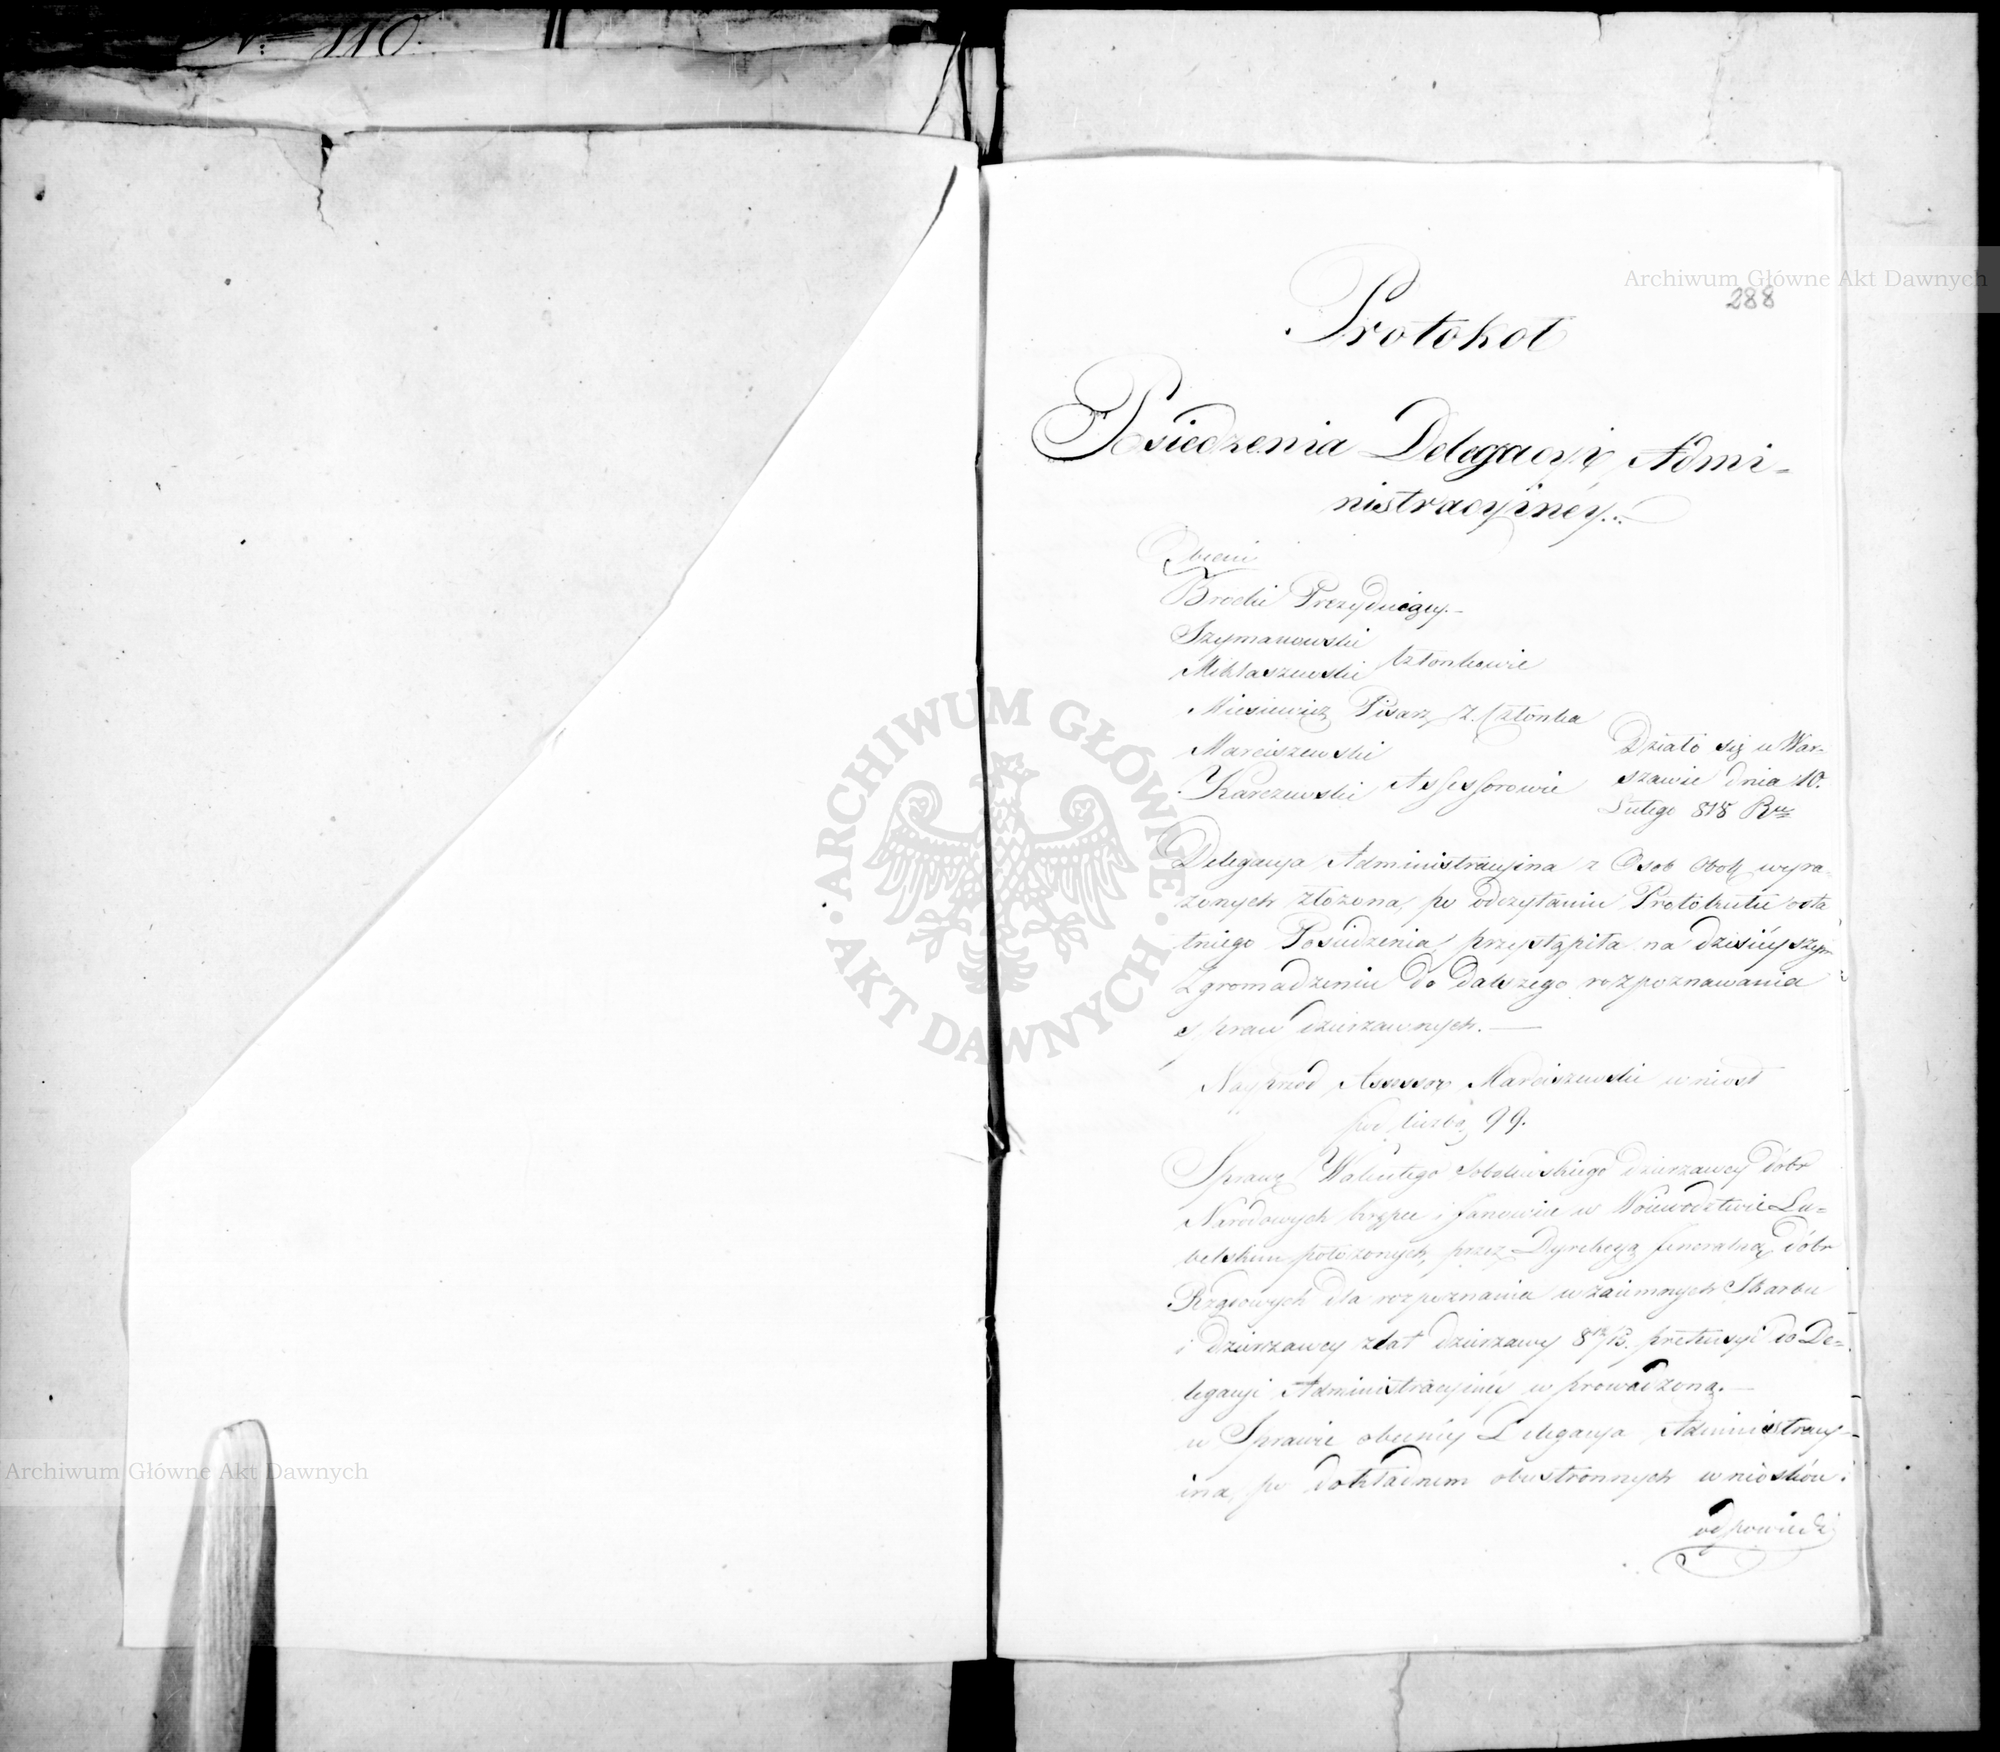 No 110.
288
Protokoł
Posiedzenia Delegacyi Admi=
nistracyinéy...
Obecni
Brocki Prezyduiący.—
Szymanowski
Mikłaszewski Członkowie
Pisarz Z. Członka
Marciszewski
Karczewski Assessorowie
Działo się w War-
szawie dnia 10.
Lutego 818 Ru
Delegacya Administracyina z Osob obok wyra-
żonych złożona, po odczytaniu Protokułu osta
tniego Posiedzenia, przystąpiła na dzisieyszym
Zgromadzeniu do dalszego rozpoznawania
spraw dzierzawnych.—
Nayprzod Assessor Marciszewski wniosł
pod liczbą 99.
Sprawę Walentego Sobolewskiego dzierzawcy dobr
Narodowych Krępce i Janowice w Woiewodztwie Lu=
belskim położonych, przez Dyrekcyą Jeneralną dóbr
Rządowych dla rozpoznania wzaiemnych Skarbu
i dzierzawcy z lat dzierzawy 812/13. pretensyi do De=
legacyi Administracyinéy wprowadzoną.—
w Sprawie obecnéy Delegacya Administracy-
ina, po dokładnem obustronnych wniosków i
odpowiedzi
ARCHIWUM GŁÓWNE
AKT DAWNYCH
Archiwum Główne Akt Dawnych
Archiwum Główne Akt Dawnych